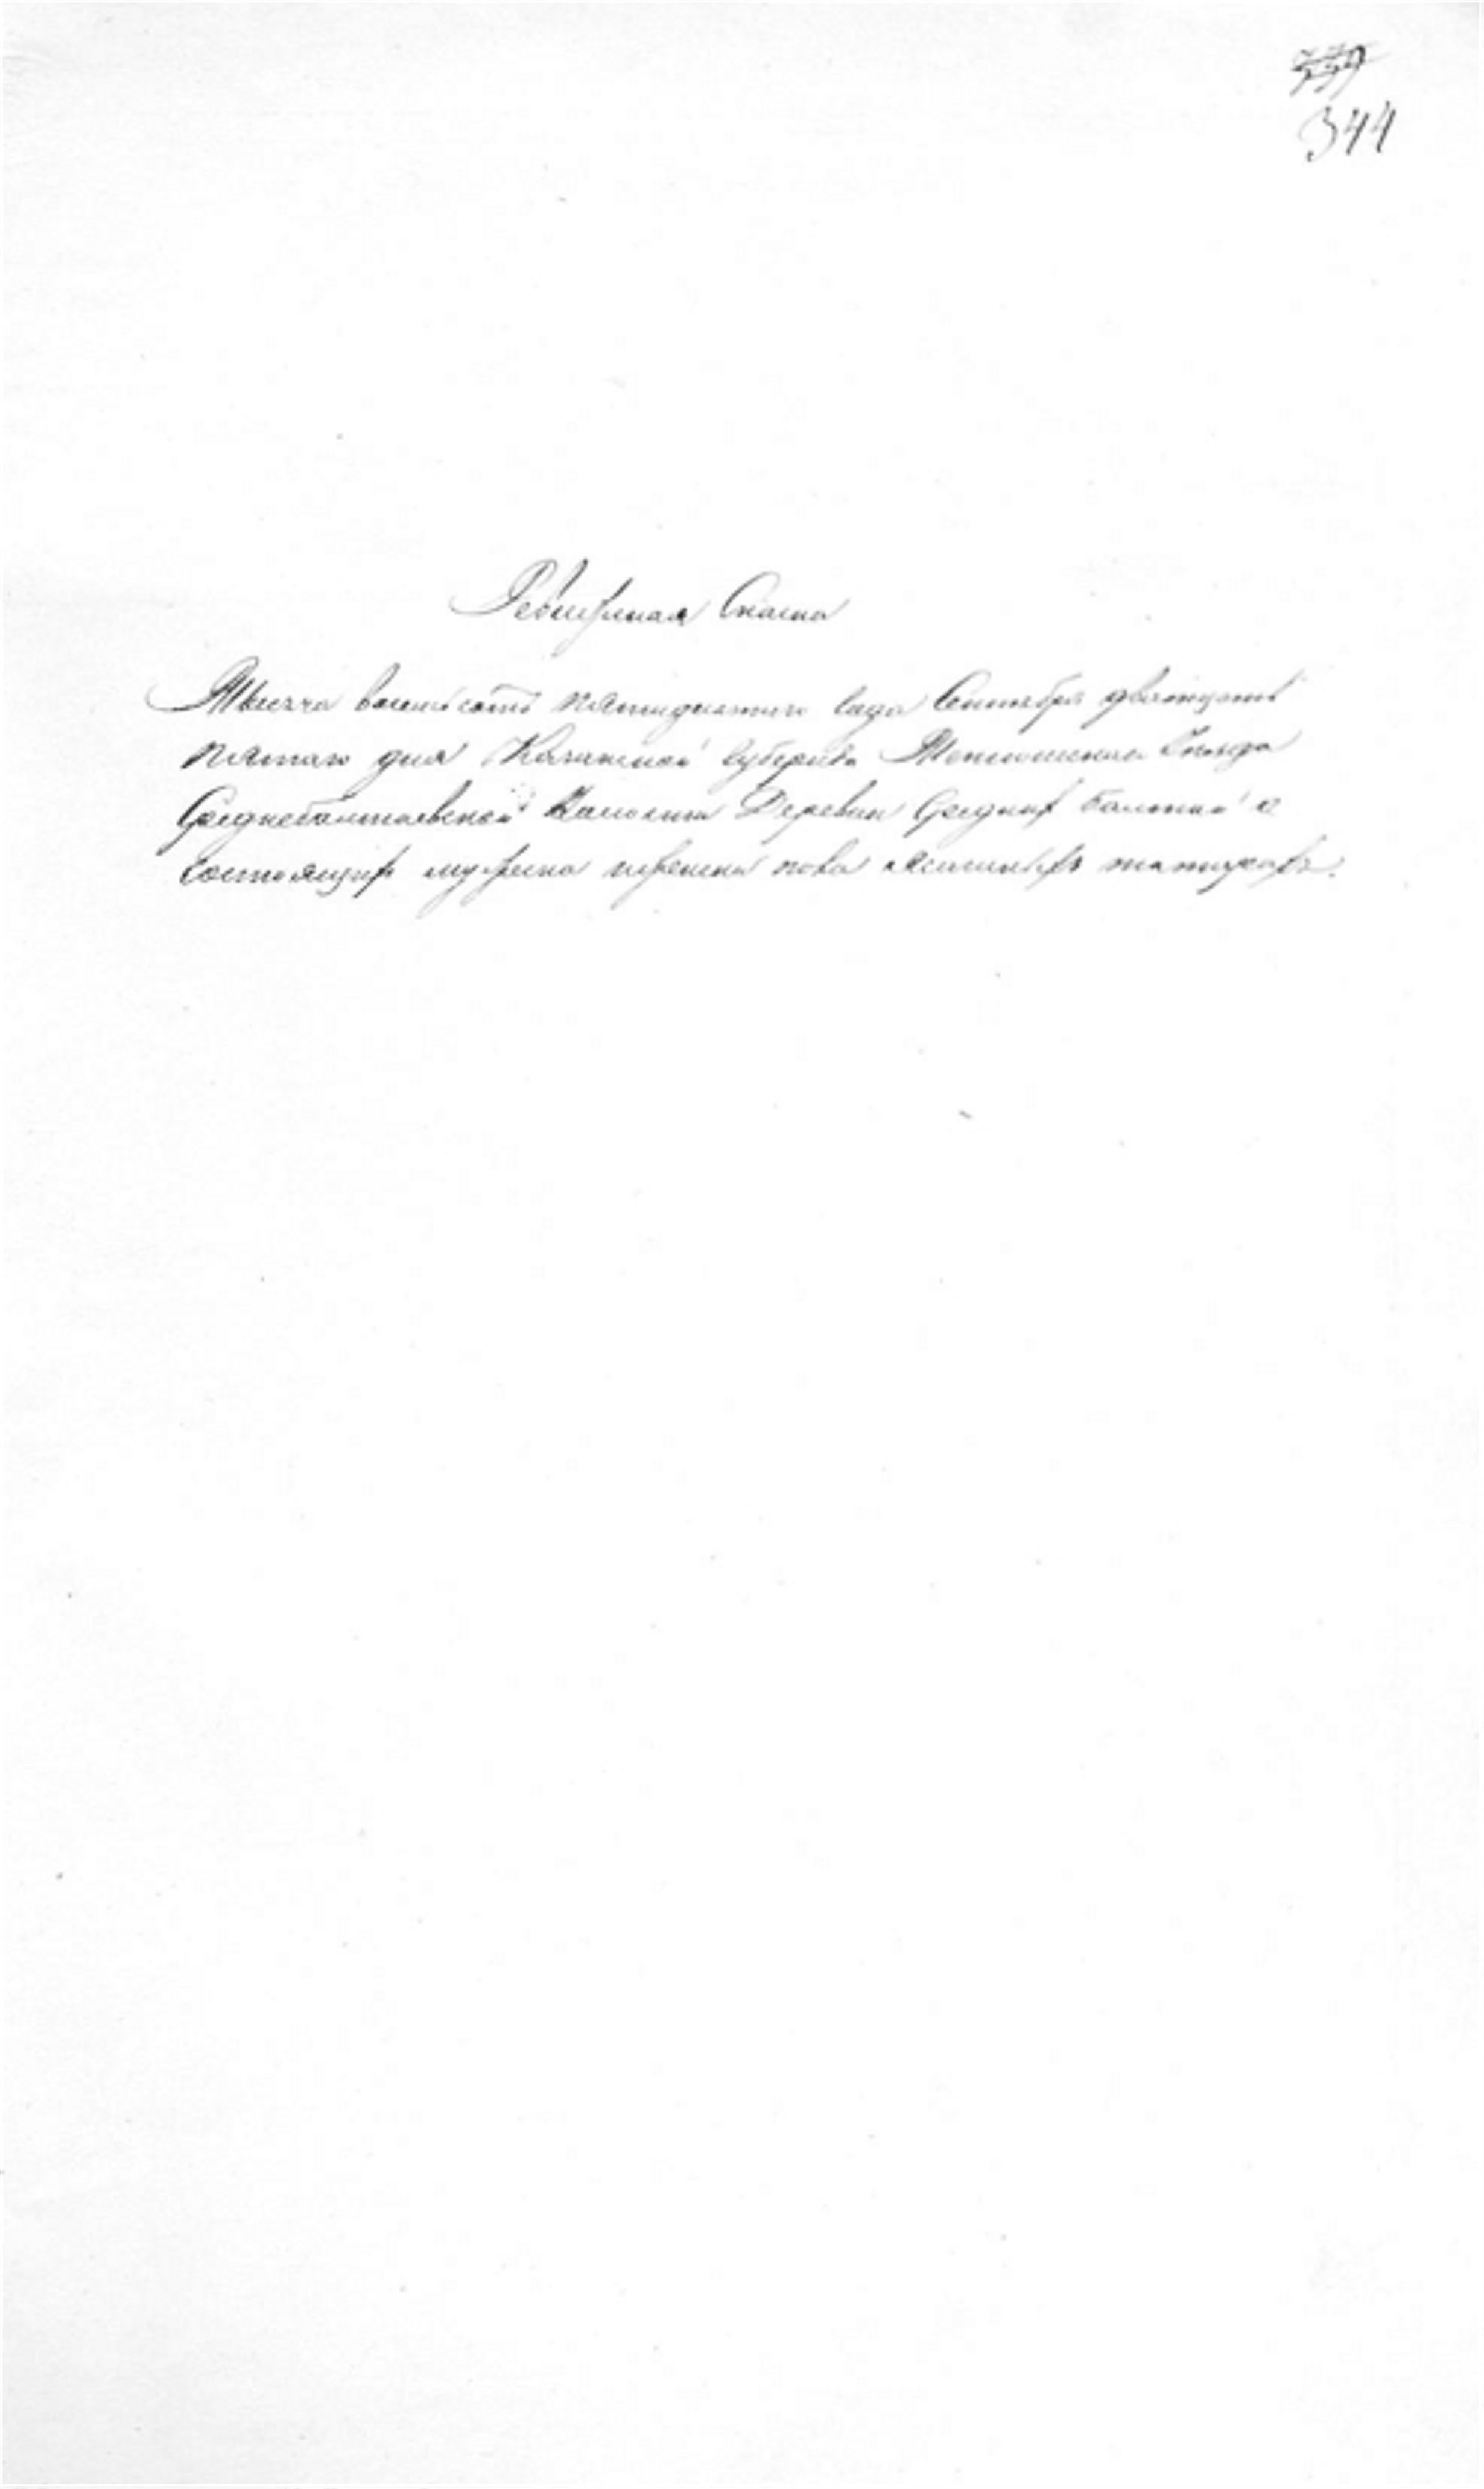 344
Ревизская Сказка
Тысяча восемьсотъ пятидесятого года Сентября дватцать
пятаго дня Казанской Губернiи Тетюшскаго Уезда
Среднебалтаевской Волости Деревни Средних Балтай о
состоящих мужеска женска пола ясашныхъ татарахъ.